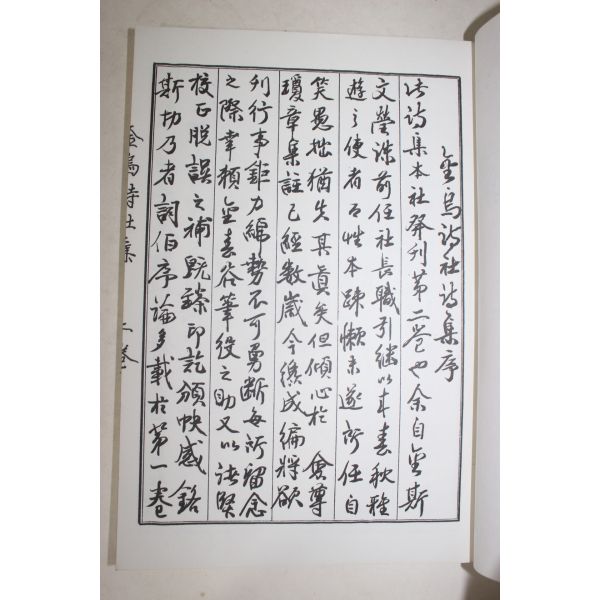 金烏詩社詩集序
此詩集本社發刊第二卷也余自金斯
文瑩洙前任社長職引継以来春秋雅
遊之使者而性本踈懶未遂所任自
笑愚拙猶失其眞矣但傾心於 會尊
瓊章集註已經數歲今纔成編將欲
刊行事鉅力綿勢不可勇斷每所留念
之際幸賴金春谷筆役之助又以諸賢
校正脫誤之補既臻印訖頒帙感銘
斯切乃者詞伯序論多載於第一卷
金烏詩社集 二卷